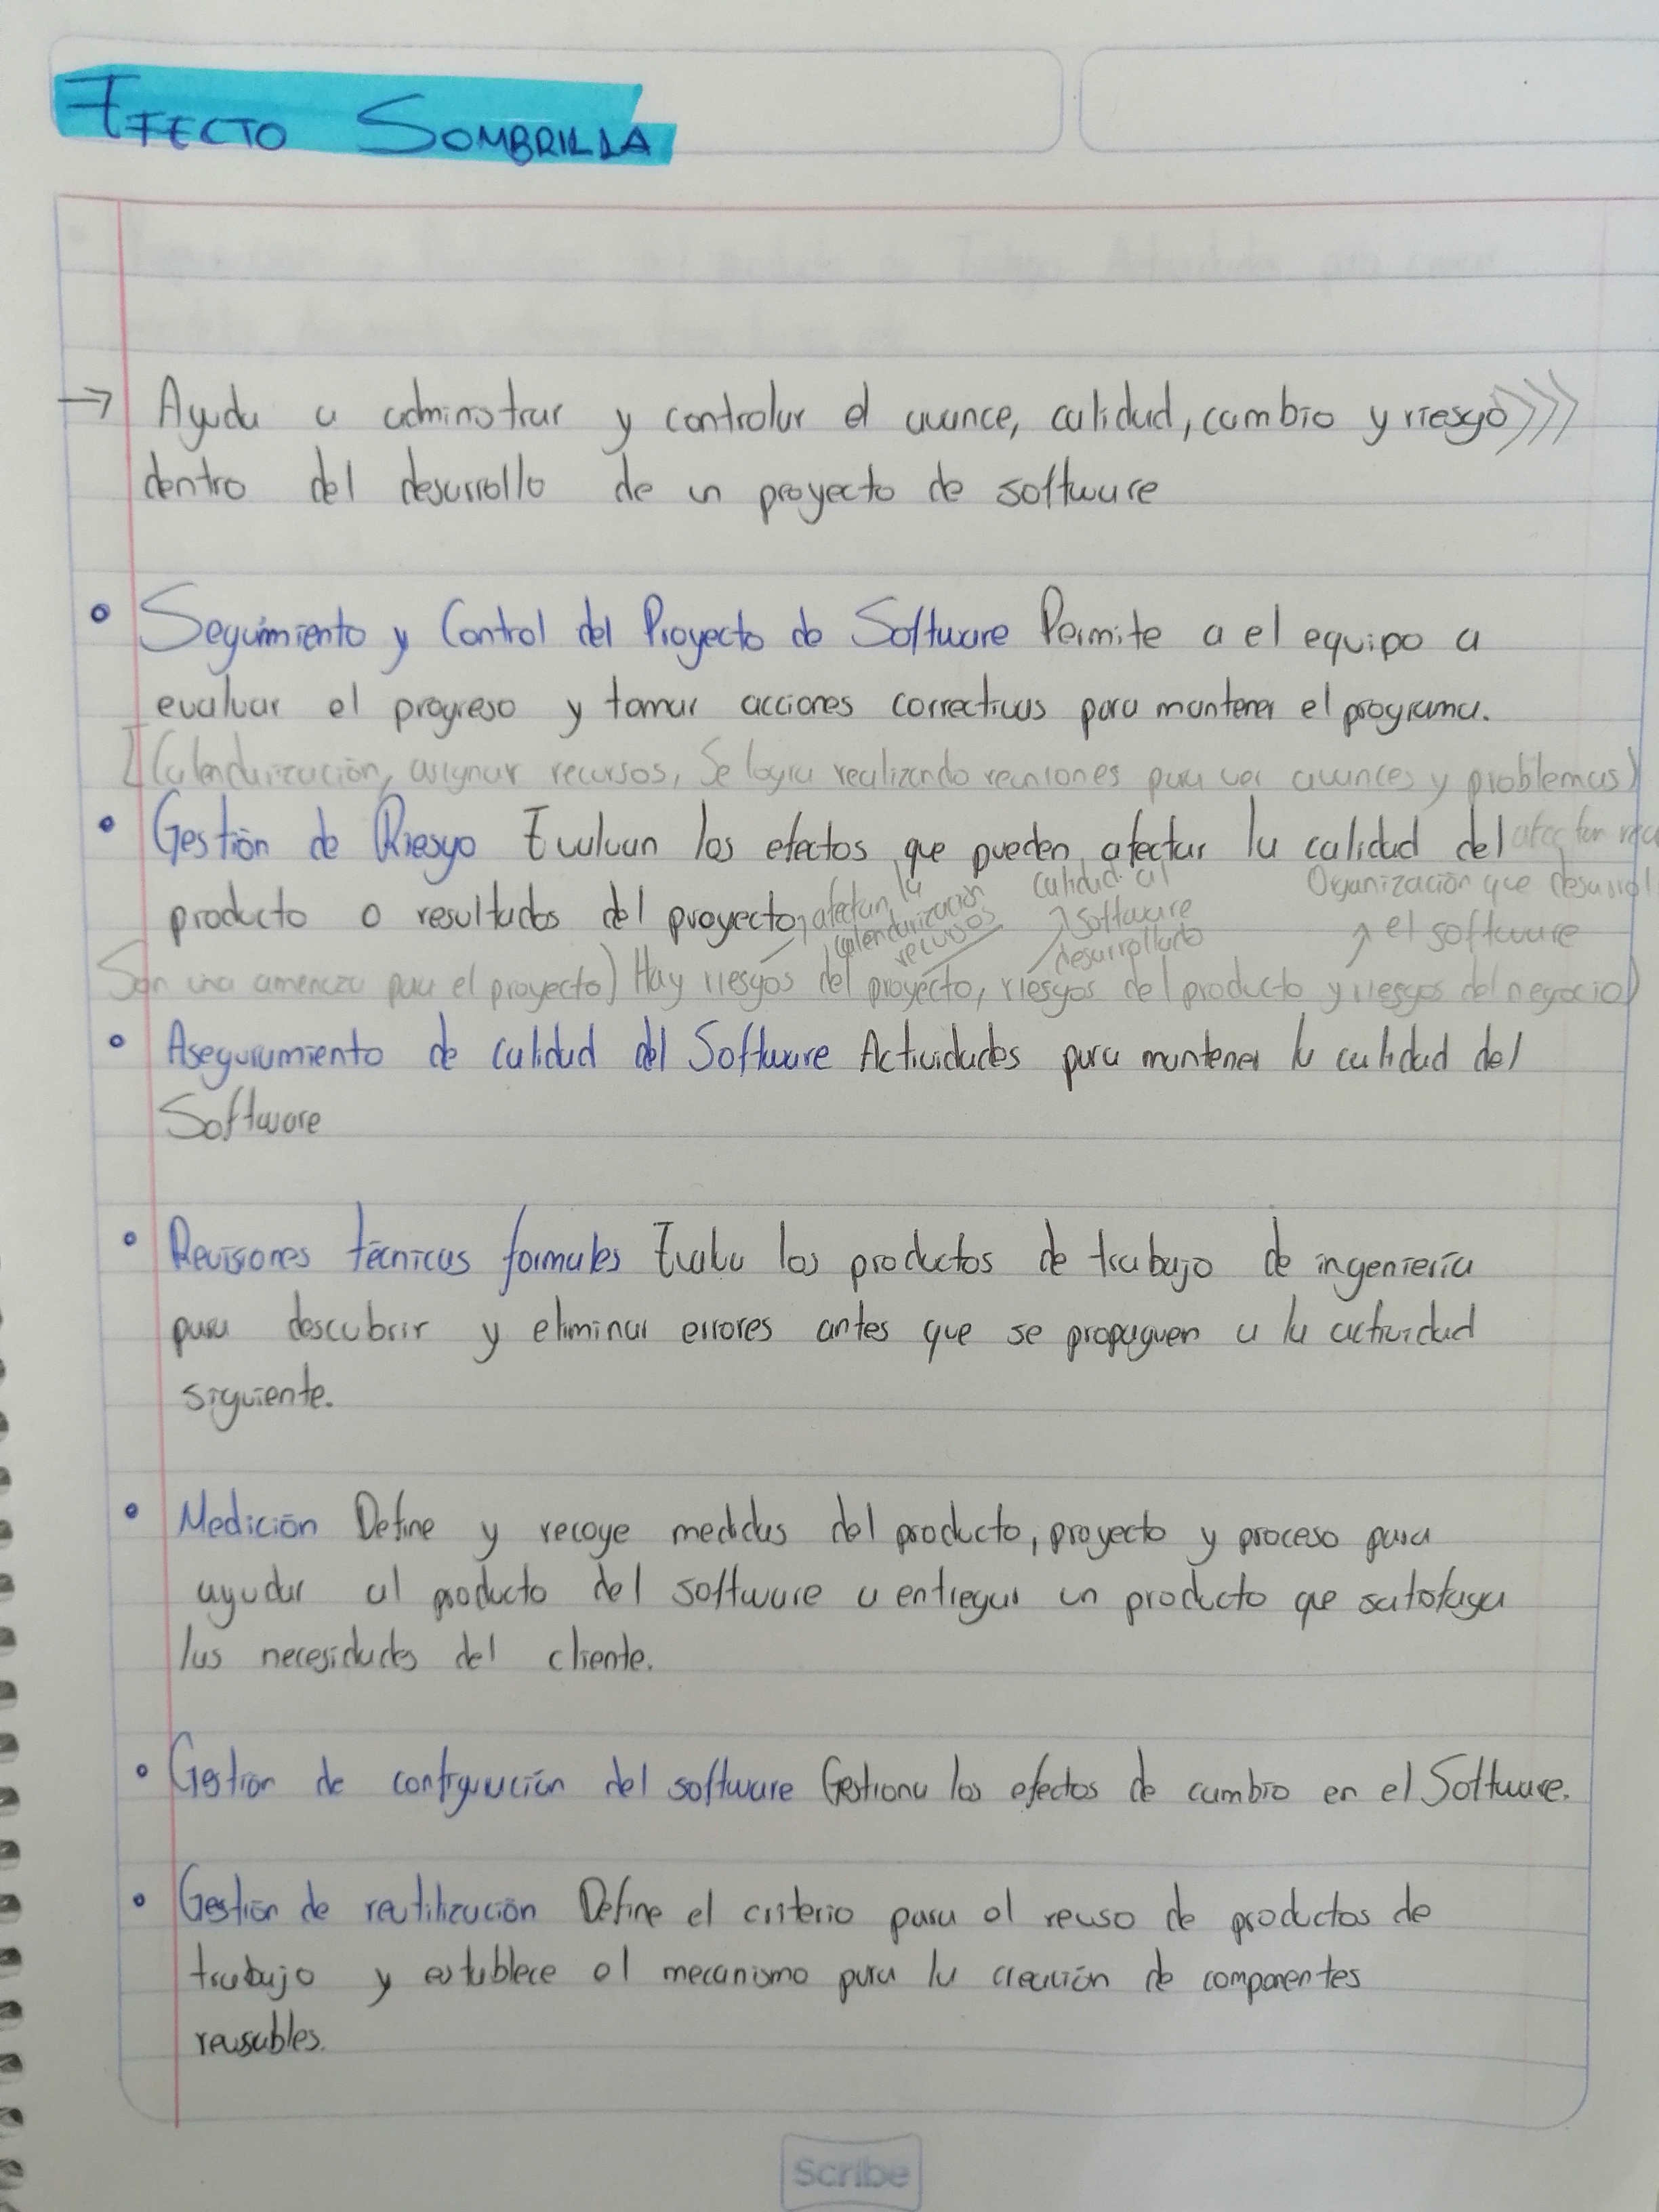 EFECTO SOMBRILLA
→ Ayuda a administrar y controlar el avance, calidad, cambio y riesgo
dentro del desarrollo de un proyecto de software
• Seguimiento y Control del Proyecto de Software Permite a el equipo a
evaluar el progreso y tomar acciones correctivas para mantener el programa.
[Calendarización, asignar recursos, Se logra realizando reuniones para ver avances y problemas)
• Gestión de Riesgo Evaluan los efectos que pueden afectar la calidad del afectan
producto o resultados del proyecto,
afectan la
calendarización
recursos
calidad al
software
desarrollado
Organización que
el software
Son una amenaza para el proyecto) Hay riesgos del proyecto, riesgos del producto y riesgos del negocio)
• Aseguramiento de calidad del Software Actividades para mantener la calidad del
Software
• Revisiones técnicas formales Evalua los productos de trabajo de ingeniería
para descubrir y eliminar errores antes que se propaguen a la actividad
siguiente.
• Medición Define y recoge medidas del producto, proyecto y proceso para
ayudar al producto del software a entregar un producto que satisfaga
las necesidades del cliente.
• Gestión de configuración del software Gestiona los efectos de cambio en el Software.
• Gestión de reutilización Define el criterio para el reuso de productos de
trabajo y establece el mecanismo para la creación de componentes
reusables.
Scribe